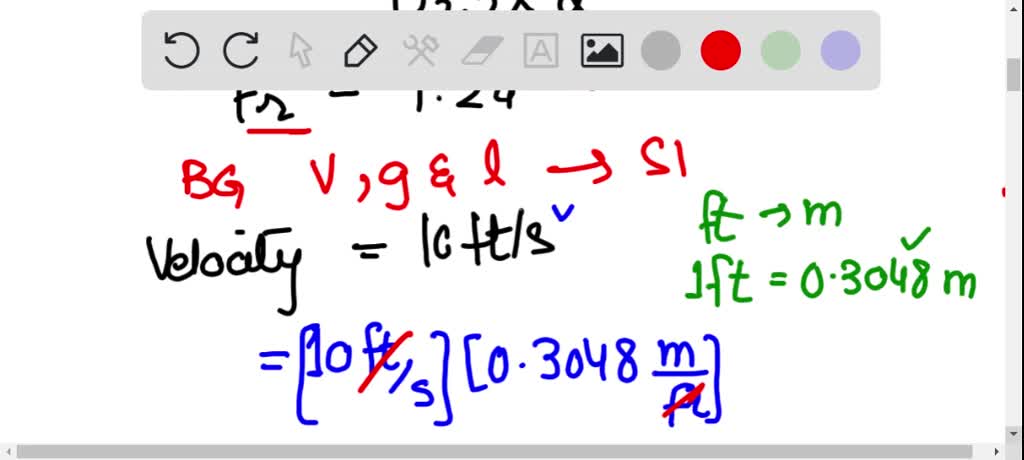 Fr = 1.24
BG V, g & l → SI
Velocity = 10 ft/s
ft → m
1ft = 0.3048 m
= [10 ft/s] [0.3048 m/ft]